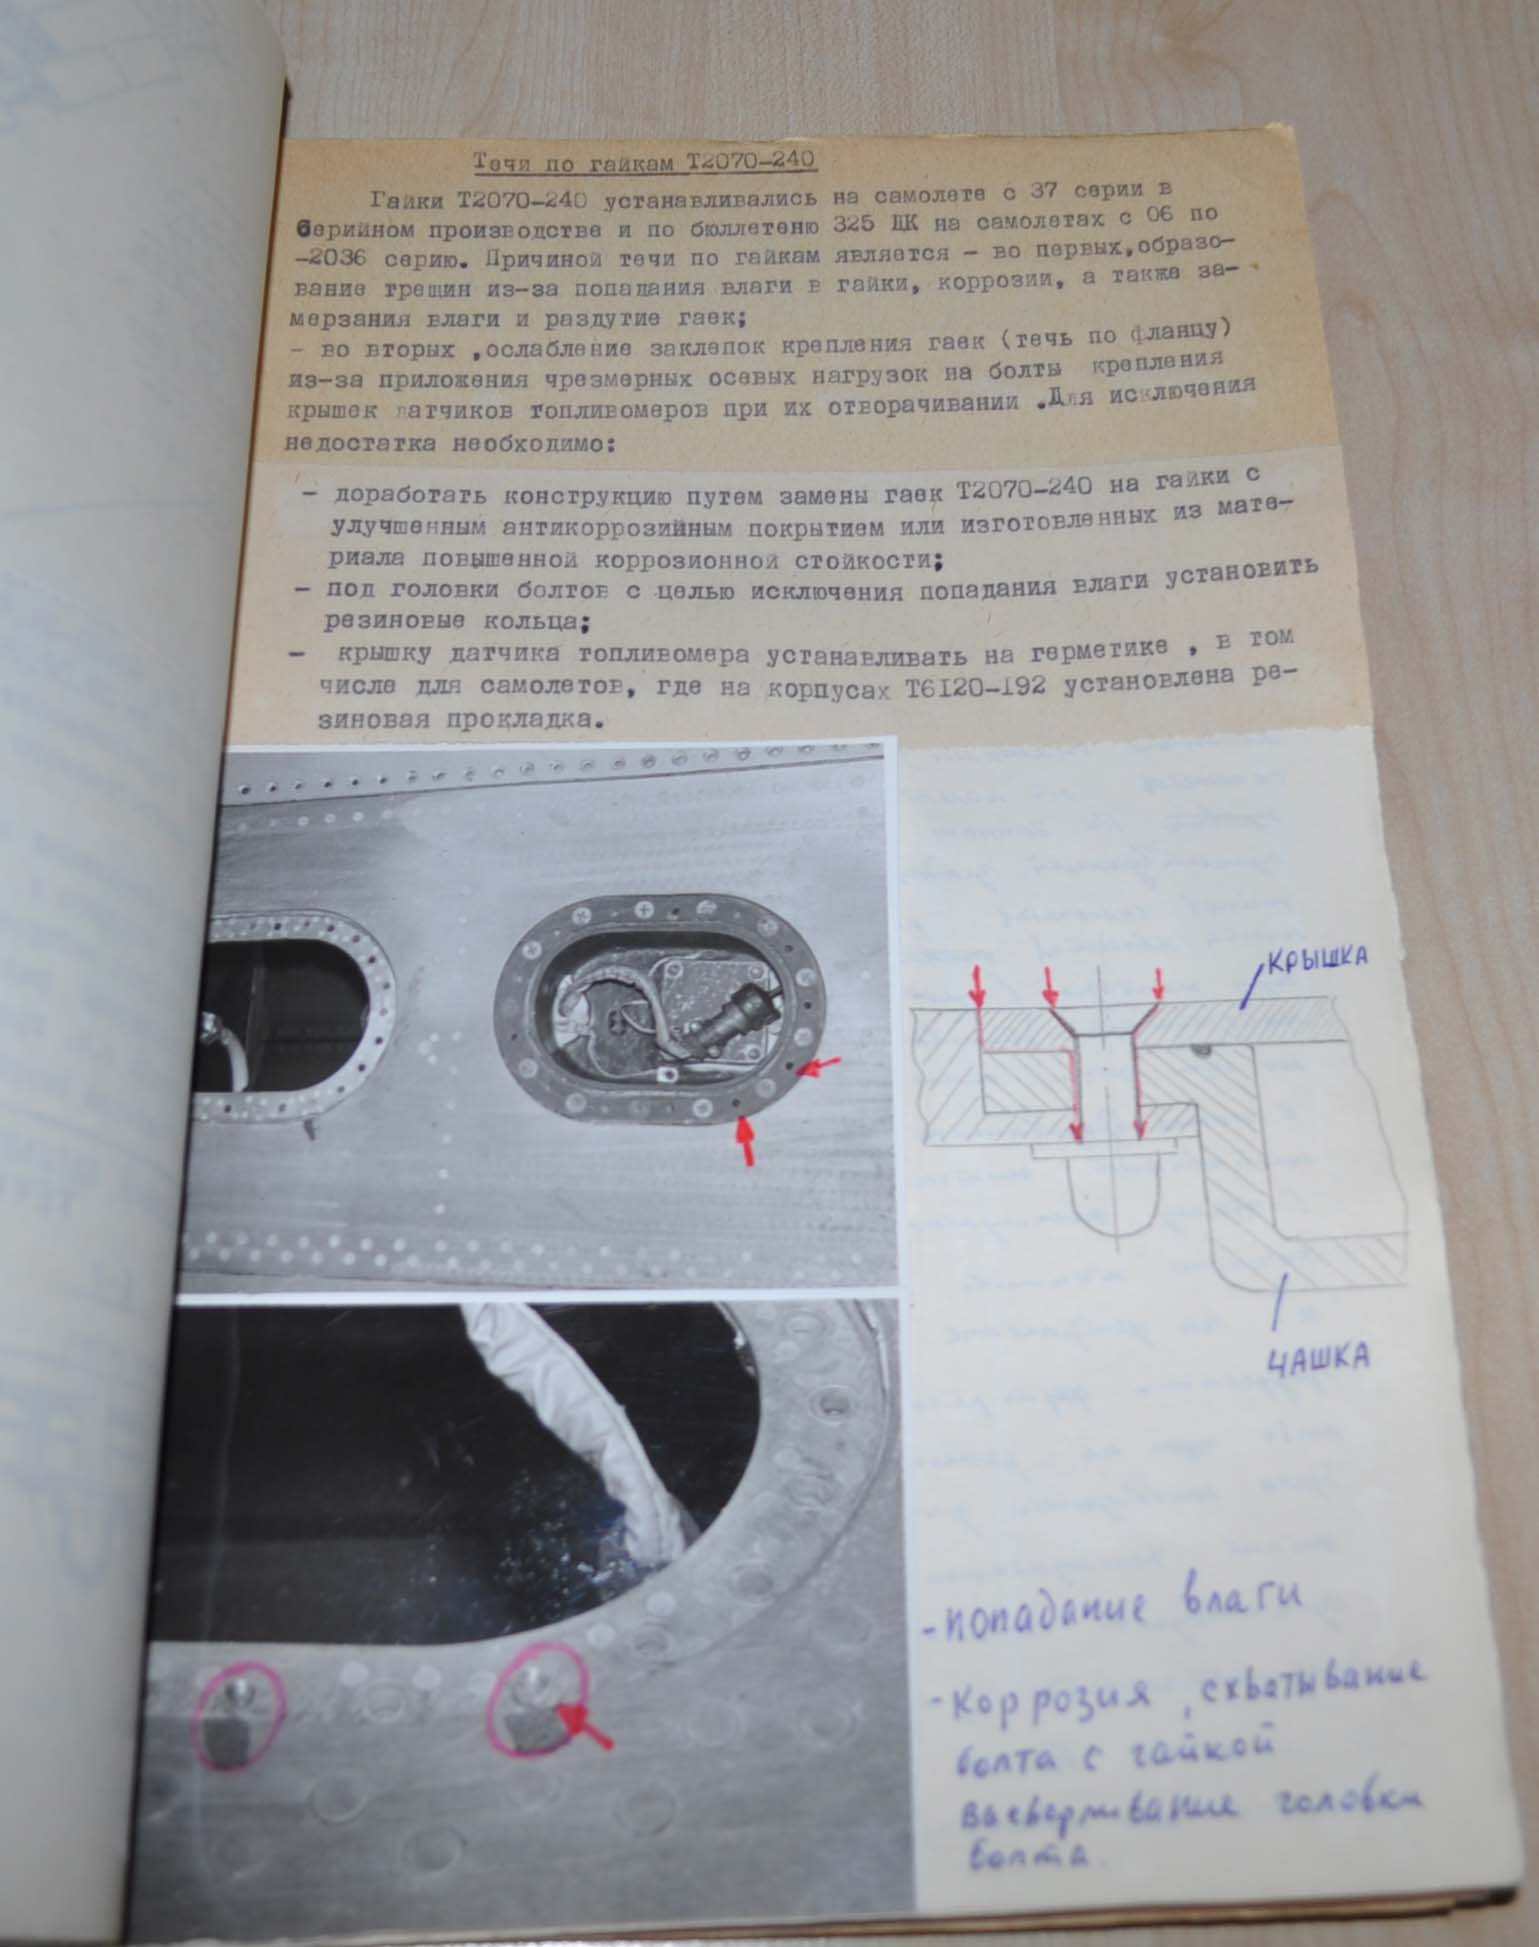 Течи по гайкам Т2070-240
Гайки Т2070-240 устанавливались на самолете с 37 серии в
серийном производстве и по бюллетеню 325 ДК на самолетах с 06 по
-2036 серию. Причиной течи по гайкам является - во первых,образо-
вание трещин из-за попадания влаги в гайки, коррозии, а также за-
мерзания влаги и раздутие гаек;
- во вторых ,ослабление заклепок крепления гаек (течь по фланцу)
из-за приложения чрезмерных осевых нагрузок на болты крепления
крышек датчиков топливомеров при их отворачивании .Для исключения
недостатка необходимо:
- доработать конструкцию путем замены гаек Т2070-240 на гайки с
улучшенным антикоррозийным покрытием или изготовленных из мате-
риала повышенной коррозионной стойкости;
- под головки болтов с целью исключения попадания влаги установить
резиновые кольца;
- крышку датчика топливомера устанавливать на герметике , в том
числе для самолетов, где на корпусах Т6I20-I92 установлена ре-
зиновая прокладка.
КРЫШКА
ЧАШКА
- попадание влаги
- Коррозия, схватывание
болта с гайкой
высверливание головки
болта.